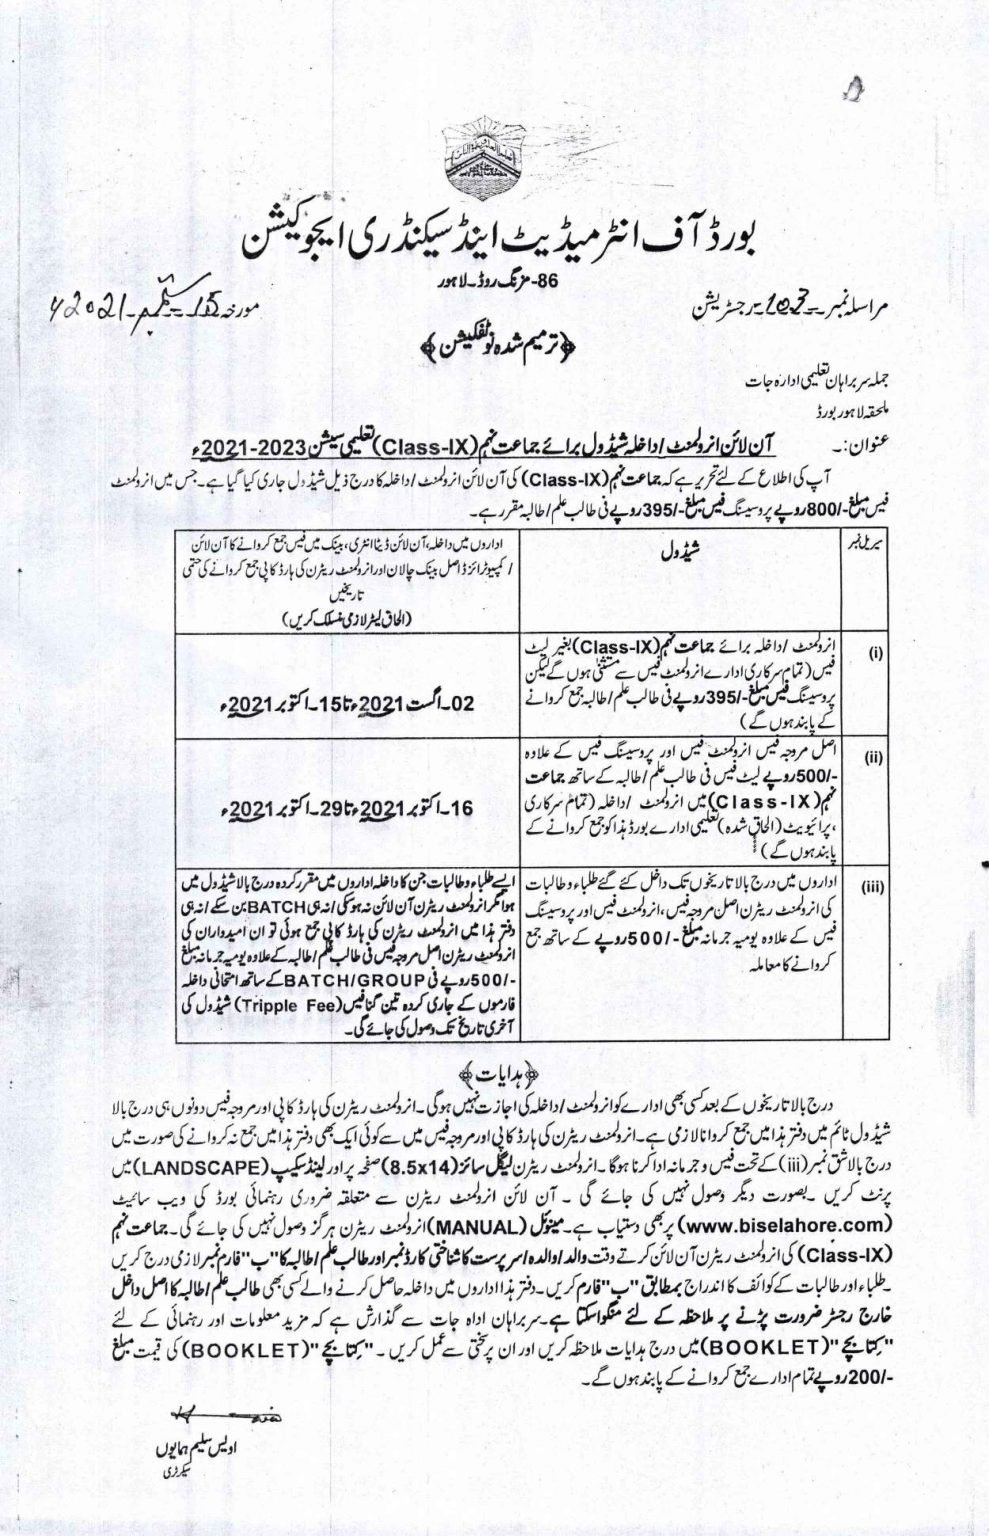 بورڈ آف انٹرمیڈیٹ اینڈ سیکنڈری ایجوکیشن
86-مزنگ روڈ۔لاہور
مراسلہ نمبر 103 رجسٹریشن
مورخہ 15 ستمبر 2021ء
﴿ترمیم شدہ نوٹیفکیشن﴾
جملہ سربراہان تعلیمی ادارہ جات
ملحقہ لاہور بورڈ
عنوان:۔ آن لائن انرولمنٹ/داخلہ شیڈول برائے جماعت نہم (Class-IX) تعلیمی سیشن 2023-2021ء
آپ کی اطلاع کے لئے تحریر ہے کہ جماعت نہم (Class-IX) کی آن لائن انرولمنٹ/داخلہ کا درج ذیل شیڈول جاری کیا گیا ہے۔ جس میں انرولمنٹ
فیس مبلغ -/800 روپے پروسیسنگ فیس مبلغ -/395 روپے فی طالب علم/طالبہ مقرر ہے۔
سیریل نمبر
شیڈول
اداروں میں داخلہ، آن لائن ڈیٹا انٹری، بینک میں فیس جمع کروانے کا آن لائن
/کمپیوٹرائزڈ اصل بینک چالان اور انرولمنٹ ریٹرن کی ہارڈ کاپی جمع کروانے کی حتمی
تاریخیں
(الحاق لیٹر لازمی منسلک کریں)
(i)
انرولمنٹ/داخلہ برائے جماعت نہم (Class-IX) بغیر لیٹ
فیس (تمام سرکاری ادارے انرولمنٹ فیس سے مستثنیٰ ہوں گے لیکن
پروسیسنگ فیس مبلغ -/395 روپے فی طالب علم/طالبہ جمع کروانے
کے پابند ہوں گے)
02۔اگست 2021ء تا 15۔اکتوبر 2021ء
(ii)
اصل مروجہ فیس انرولمنٹ فیس اور پروسیسنگ فیس کے علاوہ
-/500 روپے لیٹ فیس فی طالب علم/طالبہ کے ساتھ جماعت
نہم (Class-IX) میں انرولمنٹ/داخلہ (تمام سرکاری
،پرائیویٹ (الحاق شدہ) تعلیمی ادارے بورڈ ہذا کو جمع کروانے کے
پابند ہوں گے)
16۔اکتوبر 2021ء تا 29۔اکتوبر 2021ء
(iii)
اداروں میں درج بالا تاریخوں تک داخل کئے گئے طلباء و طالبات
کی انرولمنٹ ریٹرن اصل مروجہ فیس، انرولمنٹ فیس اور پروسیسنگ
فیس کے علاوہ یومیہ جرمانہ مبلغ -/500 روپے کے ساتھ جمع
کروانے کا معاملہ
ایسے طلباء و طالبات جن کا داخلہ اداروں میں مقرر کردہ درج بالا شیڈول میں
ہوا مگر انرولمنٹ ریٹرن آن لائن نہ ہو سکی/نہ ہی BATCH بن سکے/نہ ہی
دفتر ہذا میں انرولمنٹ ریٹرن کی ہارڈ کاپی جمع ہوئی تو ان امیدواران کی
انرولمنٹ ریٹرن اصل مروجہ فیس فی طالب علم/طالبہ کے علاوہ یومیہ جرمانہ مبلغ
-/500 روپے فی BATCH/GROUP کے ساتھ امتحانی داخلہ
فارموں کے جاری کردہ تین گنا فیس (Tripple Fee) شیڈول کی
آخری تاریخ تک وصول کی جائے گی۔
﴿ہدایات﴾
درج بالا تاریخوں کے بعد کسی بھی ادارے کو انرولمنٹ/داخلہ کی اجازت نہیں ہوگی۔ انرولمنٹ ریٹرن کی ہارڈ کاپی اور مروجہ فیس دونوں ہی درج بالا
شیڈول ٹائم میں دفتر ہذا میں جمع کروانا لازمی ہے۔ انرولمنٹ ریٹرن کی ہارڈ کاپی اور مروجہ فیس میں سے کوئی ایک بھی دفتر ہذا میں جمع نہ کروانے کی صورت میں
درج بالا شق نمبر (iii) کے تحت فیس و جرمانہ ادا کرنا ہوگا۔ انرولمنٹ ریٹرن لیگل سائز (8.5x14) صفحہ پر اور لینڈ سکیپ (LANDSCAPE) میں
پرنٹ کریں ۔ بصورت دیگر وصول نہیں کی جائے گی ۔ آن لائن انرولمنٹ ریٹرن سے متعلقہ ضروری رہنمائی بورڈ کی ویب سائیٹ
(www.biselahore.com) پر بھی دستیاب ہے۔ مینوئل (MANUAL) انرولمنٹ ریٹرن ہرگز وصول نہیں کی جائے گی۔ جماعت نہم
(Class-IX) کی انرولمنٹ ریٹرن آن لائن کرتے وقت والد/والدہ/سرپرست کا شناختی کارڈ نمبر اور طالب علم/طالبہ کا "ب" فارم نمبر لازمی درج کریں
۔ طلباء اور طالبات کے کوائف کا اندراج بمطابق "ب" فارم کریں۔ دفتر ہذا اداروں میں داخلہ حاصل کرنے والے کسی بھی طالب علم/طالبہ کا اصل داخل
خارج رجسٹر ضرورت پڑنے پر ملاحظہ کے لئے منگوا سکتا ہے۔ سربراہان ادارہ جات سے گذارش ہے کہ مزید معلومات اور رہنمائی کے لئے
"کتابچے" (BOOKLET) میں درج ہدایات ملاحظہ کریں اور ان پر سختی سے عمل کریں ۔ "کتابچے" (BOOKLET) کی قیمت مبلغ
-/200 روپے تمام ادارے جمع کروانے کے پابند ہوں گے۔
اویس سلیم ہمایوں
سیکرٹری